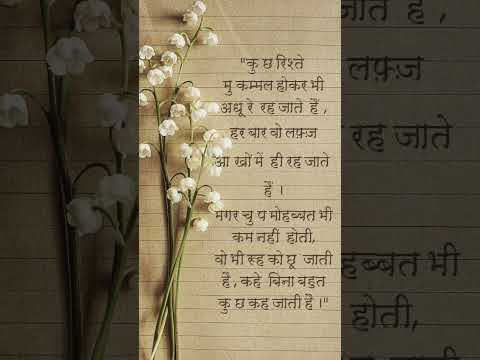 "कु छ रिश्ते
मु कम्मल होकर भी
अधू रे रह जाते हैं ,
हर बार वो लफ़्ज
आ खों में ही रह जाते
हैं ।
मगर चु प मोहब्बत भी
कम नहीं होती,
वो भी रूह को छू जाती
है , कहे बिना बहुत
कु छ कह जाती है ।"
लफ़्ज़
रह जाते
हब्बत भी
होती,